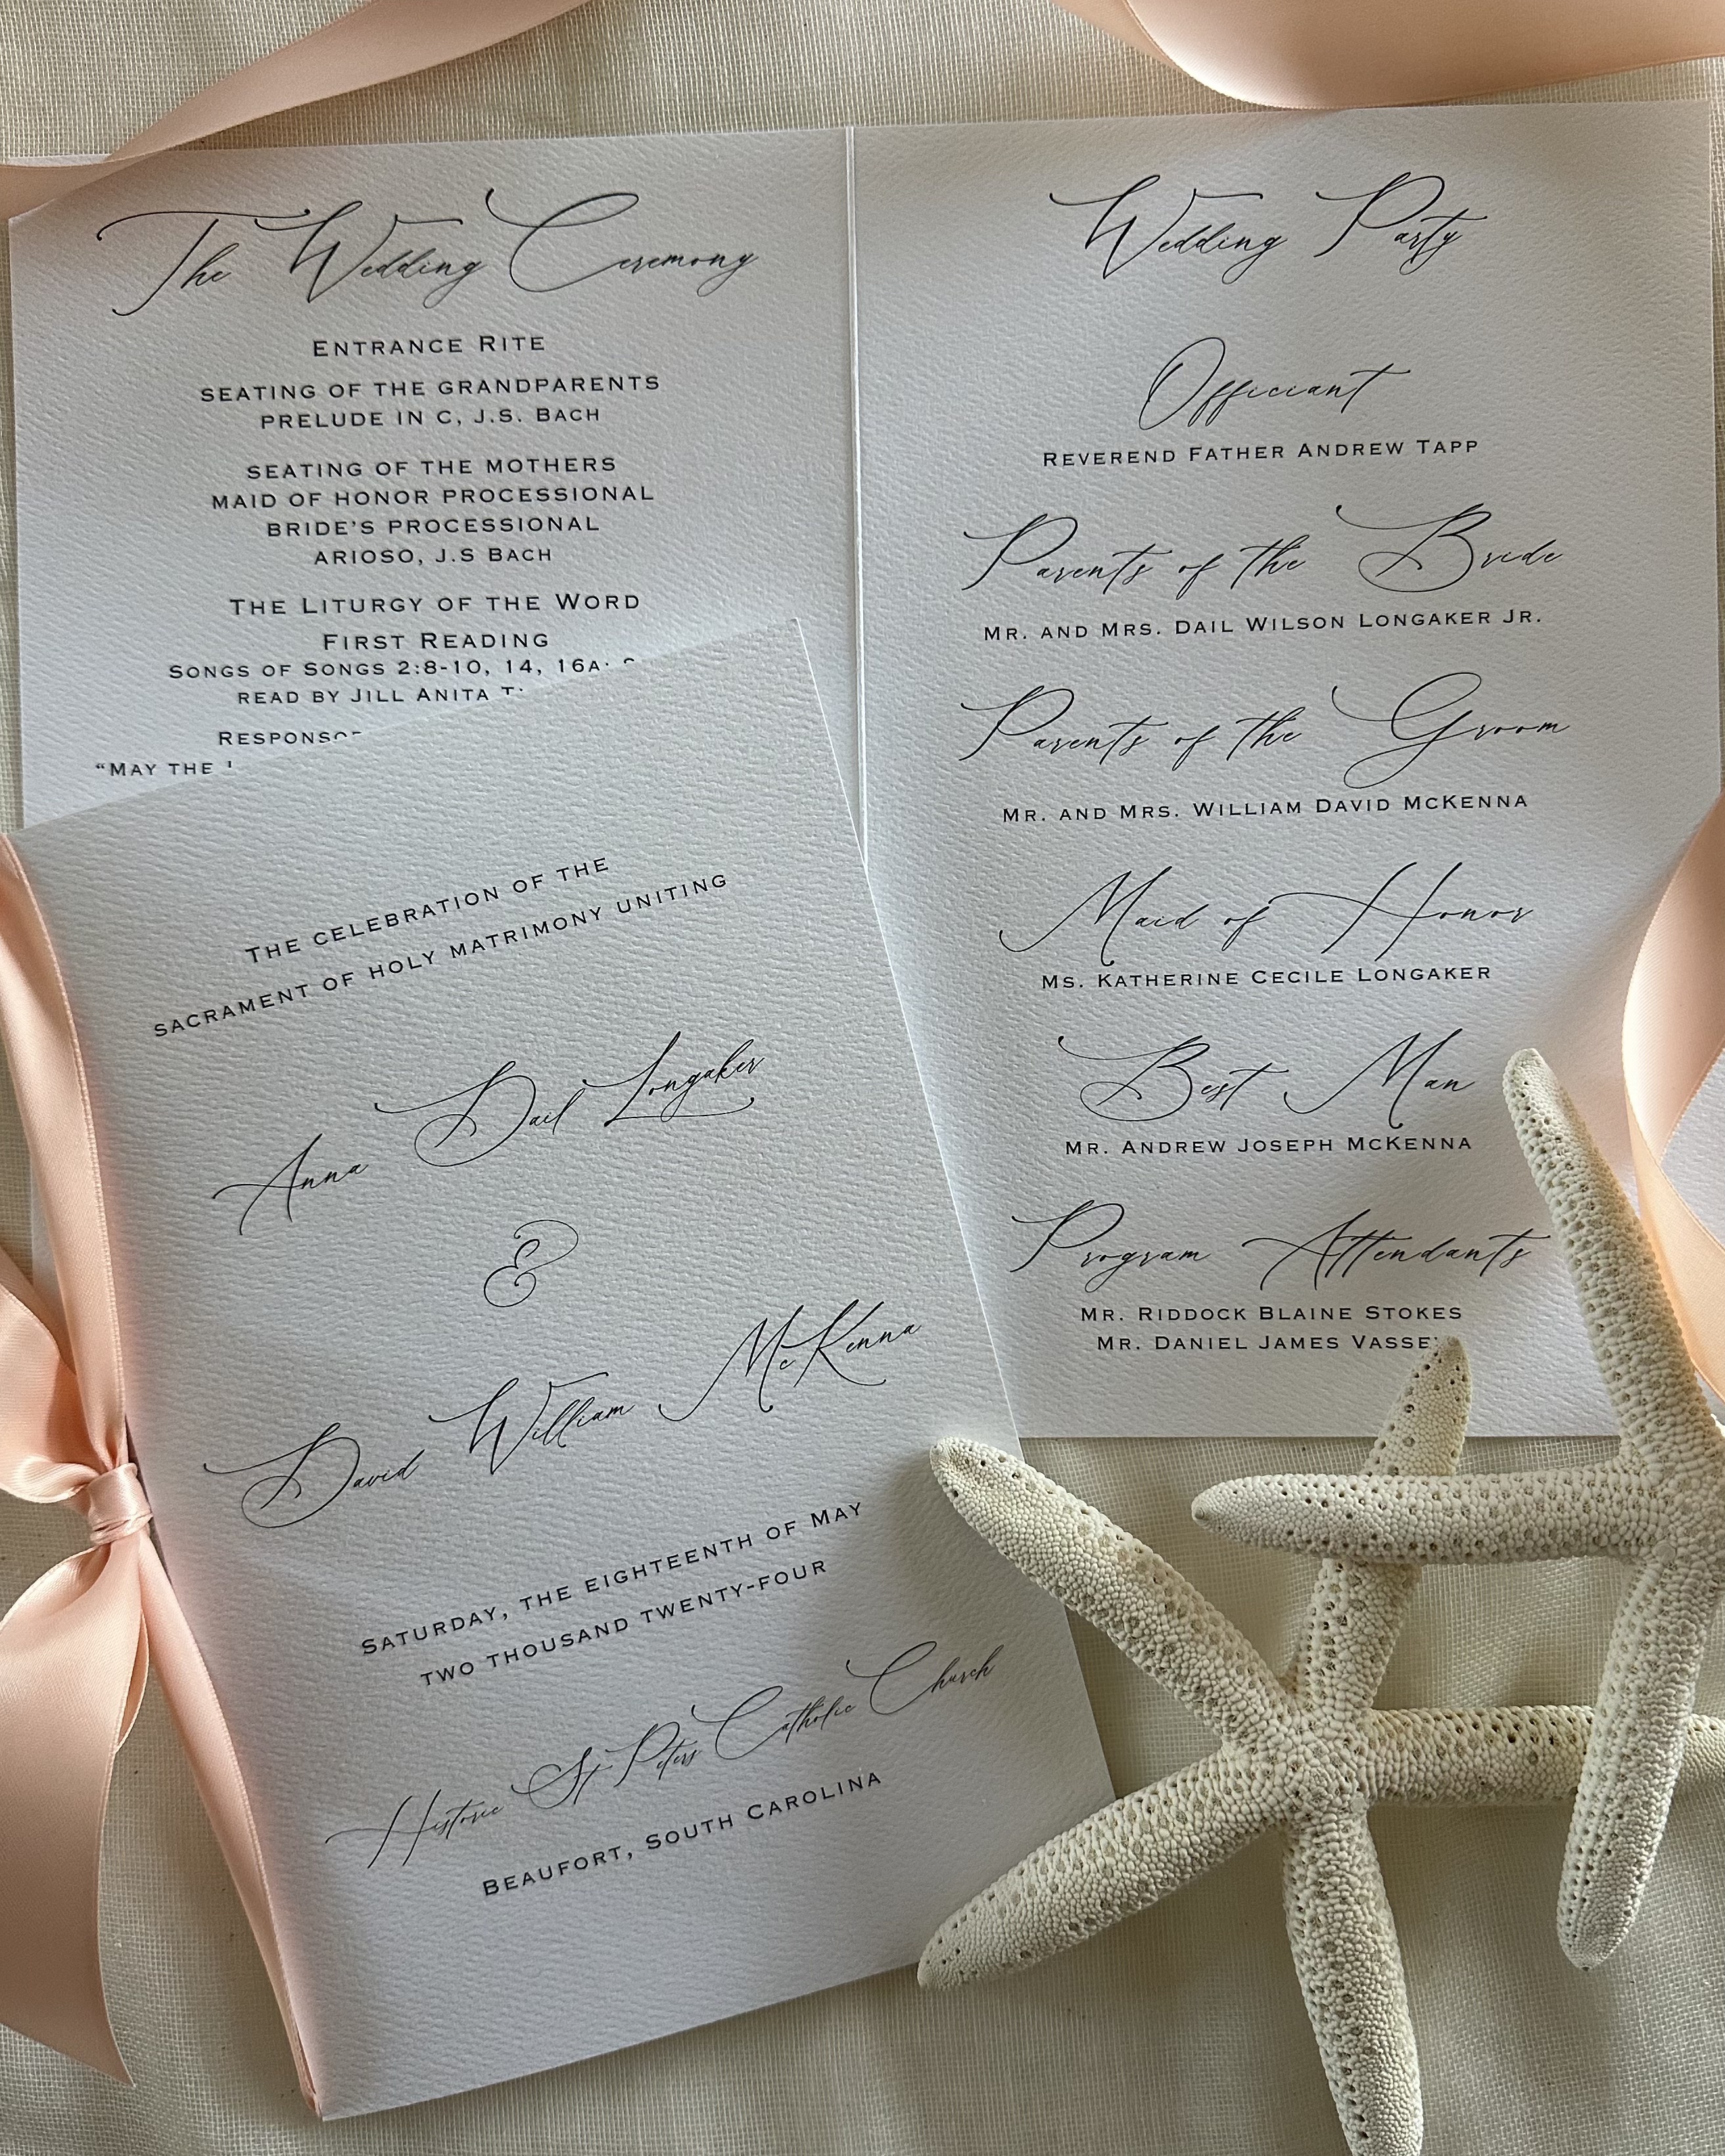 The Wedding Ceremony
Entrance Rite
seating of the grandparents
prelude in C, J.S. Bach
seating of the mothers
maid of honor processional
bride's processional
arioso, J.S Bach
The Liturgy of the Word
First Reading
Songs of Songs 2:8-10, 14, 16a
read by Jill Anita
"May the
Wedding Party
Officiant
Reverend Father Andrew Tapp
Parents of the Bride
Mr. and Mrs. Dail Wilson Longaker Jr.
Parents of the Groom
Mr. and Mrs. William David McKenna
Maid of Honor
Ms. Katherine Cecile Longaker
Best Man
Mr. Andrew Joseph McKenna
Program Attendants
Mr. Riddock Blaine Stokes
Mr. Daniel James
The celebration of the
sacrament of holy matrimony uniting
Anna Dail Longaker
&
David William McKenna
Saturday, the eighteenth of May
two thousand twenty-four
Historic St Peters Catholic Church
Beaufort, South Carolina